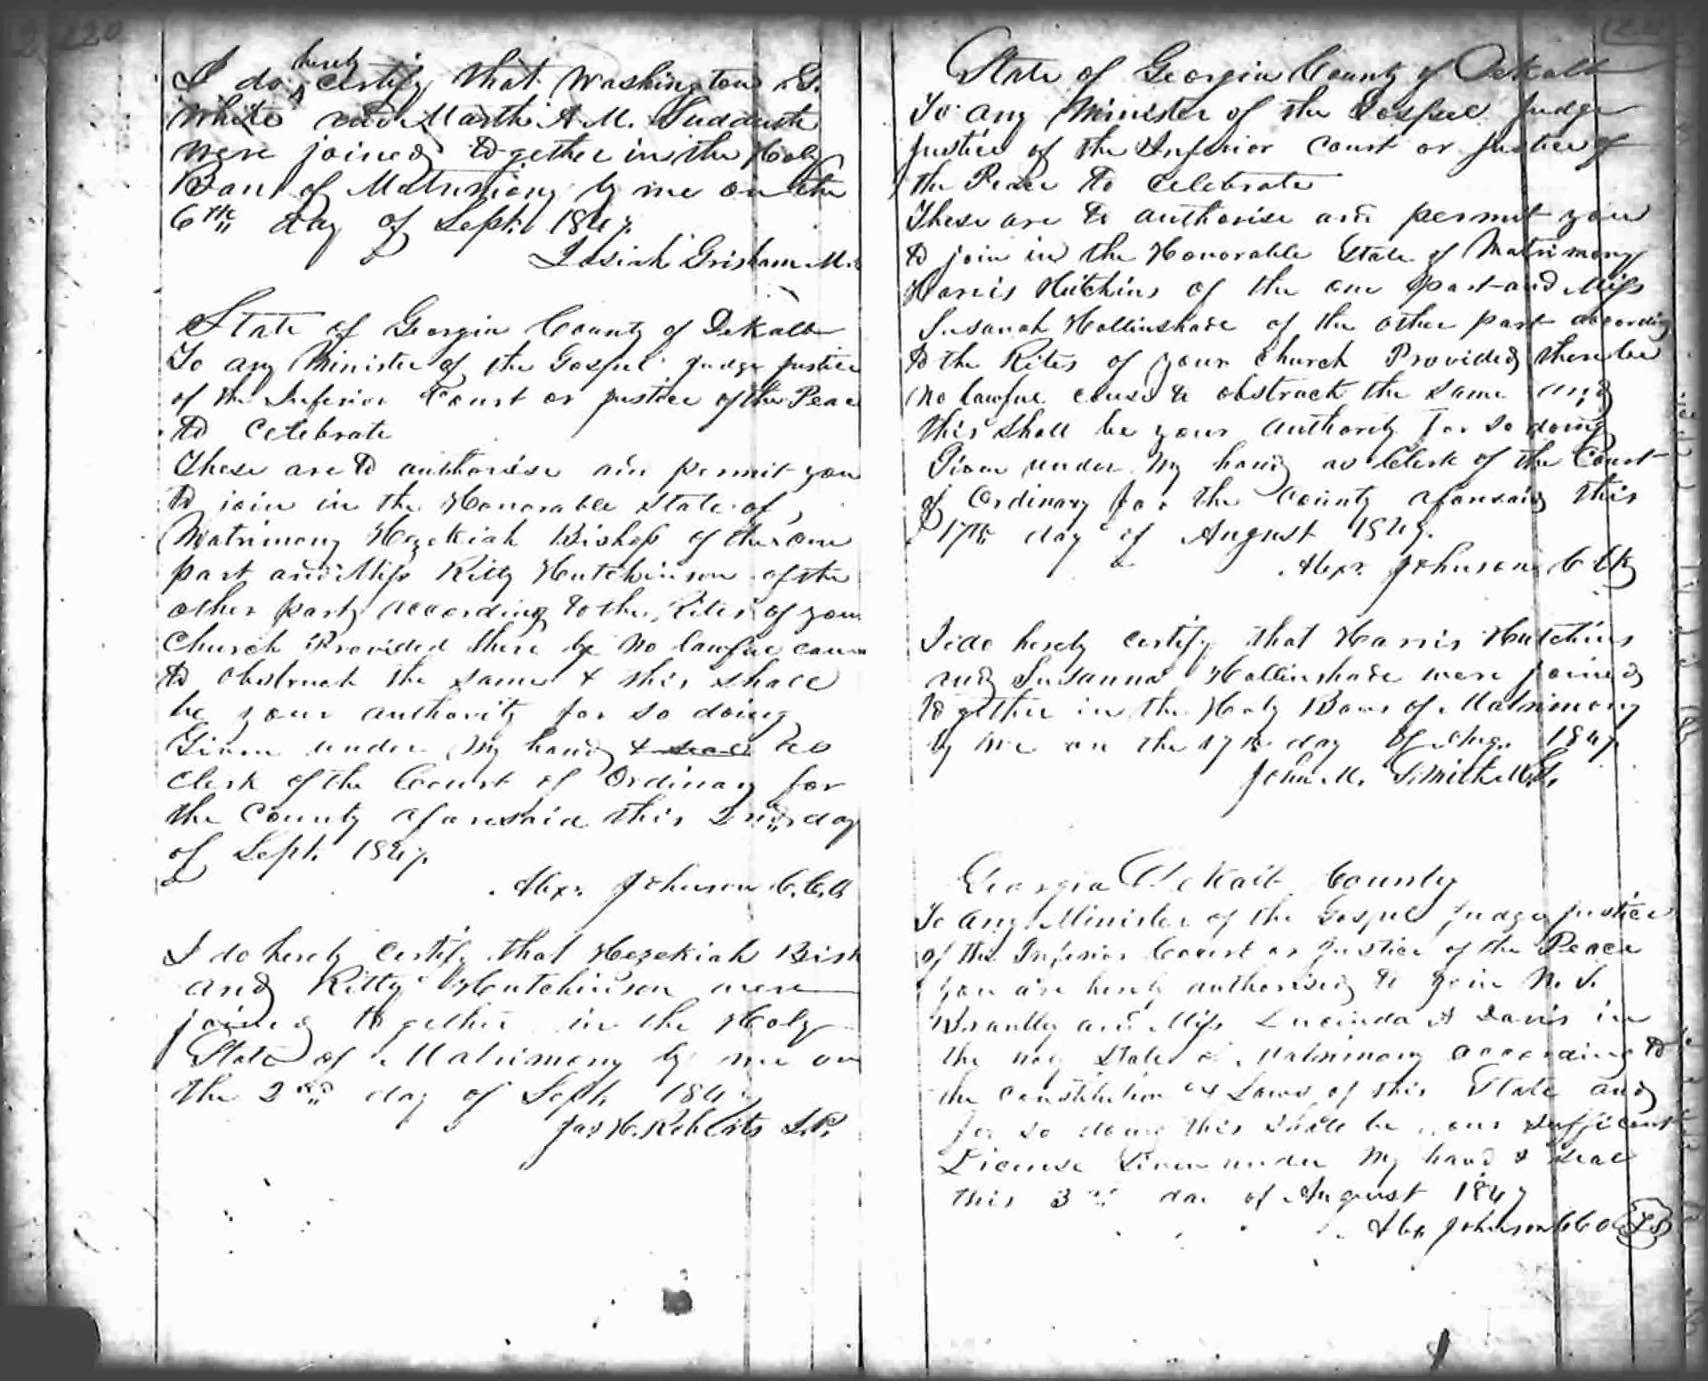 220
I do hereby certify that Washington G.
White and Martha A. M. Suddeth
were joined together in the Holy
Ban of Matrimony by me on the
6th day of Sept. 1847.
Josiah Grisham M.
State of Georgia County of DeKalb
To any Minister of the Gospel Judge Justice
of the Inferior Court or Justice of the Peace
to Celebrate
These are to authorise and permit you
to join in the Honorable State of
Matrimony Hezekiah Bishop of the one
part and Miss Kitty Hutchinson of the
other party according to the Rites of your
Church Provided there be no lawful cause
to obstruct the same & this shall
be your authority for so doing
Given under my hand & seal as
Clerk of the Court of Ordinary for
the County aforesaid this 2nd day
of Sept. 1847.
Alexr. Johnson C.C.O.
I do hereby certify that Hezekiah Bish
and Kitty Hutchinson were
joined together in the Holy
State of Matrimony by me on
the 2nd day of Sept. 1847
Jas H. Roberts J.P.
State of Georgia County of DeKalb
To any Minister of the Gospel Judge
Justice of the Inferior Court or Justice of
the Peace to Celebrate
These are to authorise and permit you
to join in the Honorable State of Matrimony
Harris Hutchins of the one part and Miss
Susanah Hollinshade of the other part according
to the Rites of your Church Provided there be
no lawful cause to obstruct the same and
this shall be your authority for so doing
Given under my hand as Clerk of the Court
of Ordinary for the County aforesaid this
17th day of August 1847.
Alexr. Johnson Clk
I do hereby certify that Harris Hutchins
and Susanna Hollinshade were joined
together in the Holy Bans of Matrimony
by me on the 17th day of Aug. 1847
John M. Smith M.G.
Georgia DeKalb County
To any Minister of the Gospel Judge Justice
of the Inferior Court or Justice of the Peace
you are hereby authorised to join N. S.
Brantley and Miss Lucinda A Davis in
the Holy State of Matrimony according to
the Constitution & Laws of this State and
for so doing this shall be your sufficient
License Given under my hand & seal
this 3rd day of August 1847
Alex Johnson CCO LS